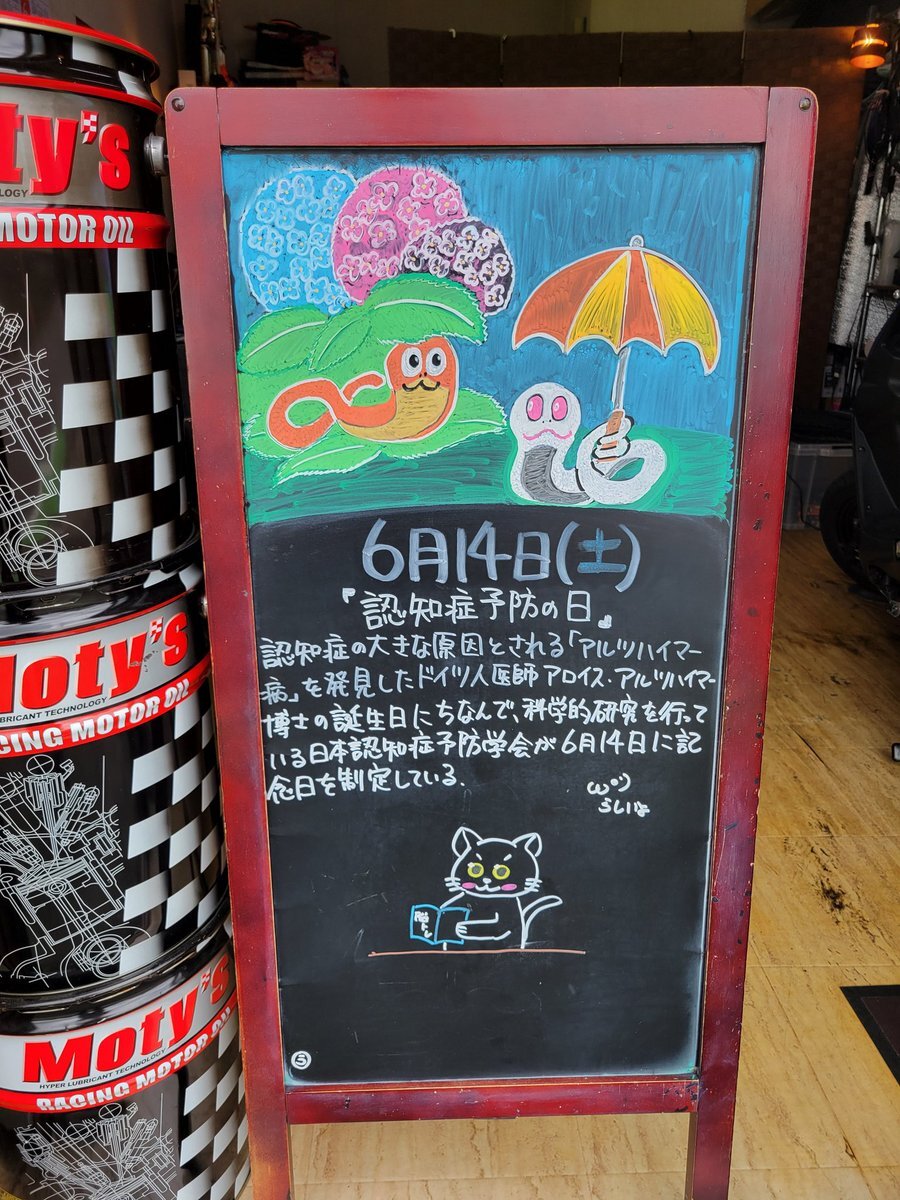 Moty's
OLOGY
MOTOR OIL
Moty's
UBRICANT TECHNOLOGY
CING MOTOR OIL
Moty's
HYPER LUBRICANT TECHNOLOGY
RACING MOTOR
6月14日(土)
『認知症予防の日』
認知症の大きな原因とされる「アルツハイマー
病」を発見したドイツ人医師 アロイス・アルツハイマー
博士の誕生日にちなんで、科学的研究を行って
いる日本認知症予防学会が6月14日に記
念日を制定している。
らしいよ
脳トレ
う